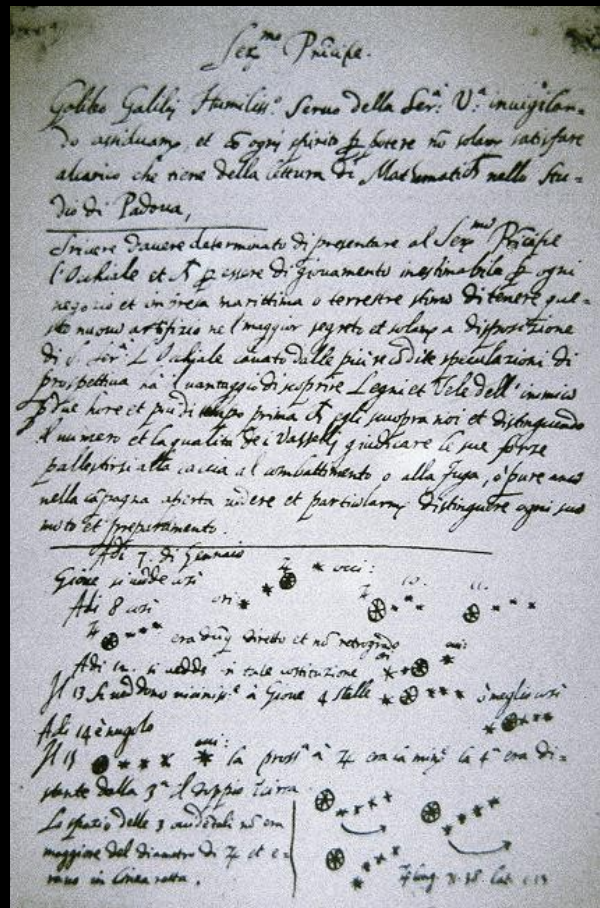 Ser.mo Prīcipe.
Galileo Galilej Humiliss.o Seruo della Ser.a V.a inuigilan-
do assiduamte, et cō ogni spirito p potere nō solamte satisfare
alcarico che tiene della lettura di Mathematicħ nello Stu-
dio di Padoua,
Scriuere dauere determinato di presentare al Sermo Prīcipe
l'Ochiale et p essere di giouamento inestimabile p ogni
negozio et impresa marittima o terrestre stimo di tenere que-
sto nuouo artifizio nel maggior segreto et solamte a disposizione
di S. Ser.a L'Ochiale cauato dalle più recōdite speculazioni di
prospettiua hà il uantaggio di scoprire Legni et Vele dell' inimico
p due hore et più di tempo prima cħ egli scuopra noi et distinguendo
il numero et la qualità dei Vasselli giudicare le sue forze
pallestirsi alla caccia al combattimento o alla fuga, ò pure anco
nella cāpagna aperta uedere et particolarmte distinguere ogni suo
moto et preparamento.
Adi 7. di Gennaio
Gioue si uedde così
ori. ♃ occi:
Adi 8 così
♃ 10. 11.
♃ era dūq diretto et nō retrogrado
Adi 12. si uedde in tale costituzione
ori occi:
Il 13 si ueddono uicinissi.e à Gioue 4 stelle ò meglio così
Adi 14 è nugolo
Il 15 occi: la prossa à ♃ era la mina la 4a era di-
stante dalla 3a il doppio circa
Lo spazio delle 3 occidentali nō era
maggiore del diametro di ♃ et e-
rano in linea retta.
♃ long. 71.38 lat. 1.13